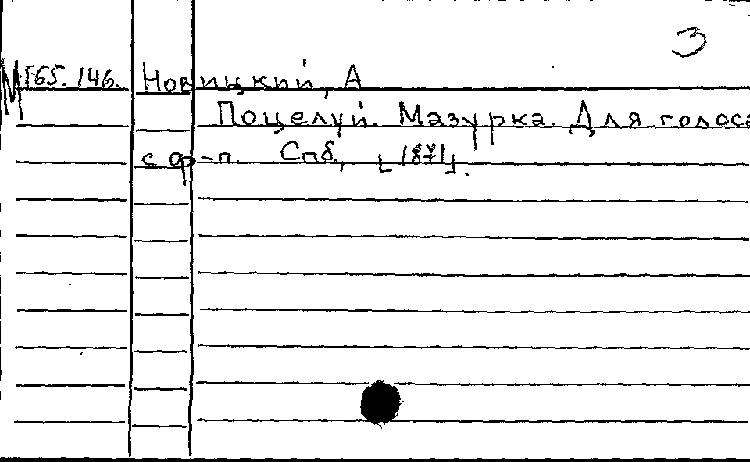 3
М 165.146. Новицкий, А
Поцелуй. Мазурка. Для голоса
с ф-п. Спб, [1871].